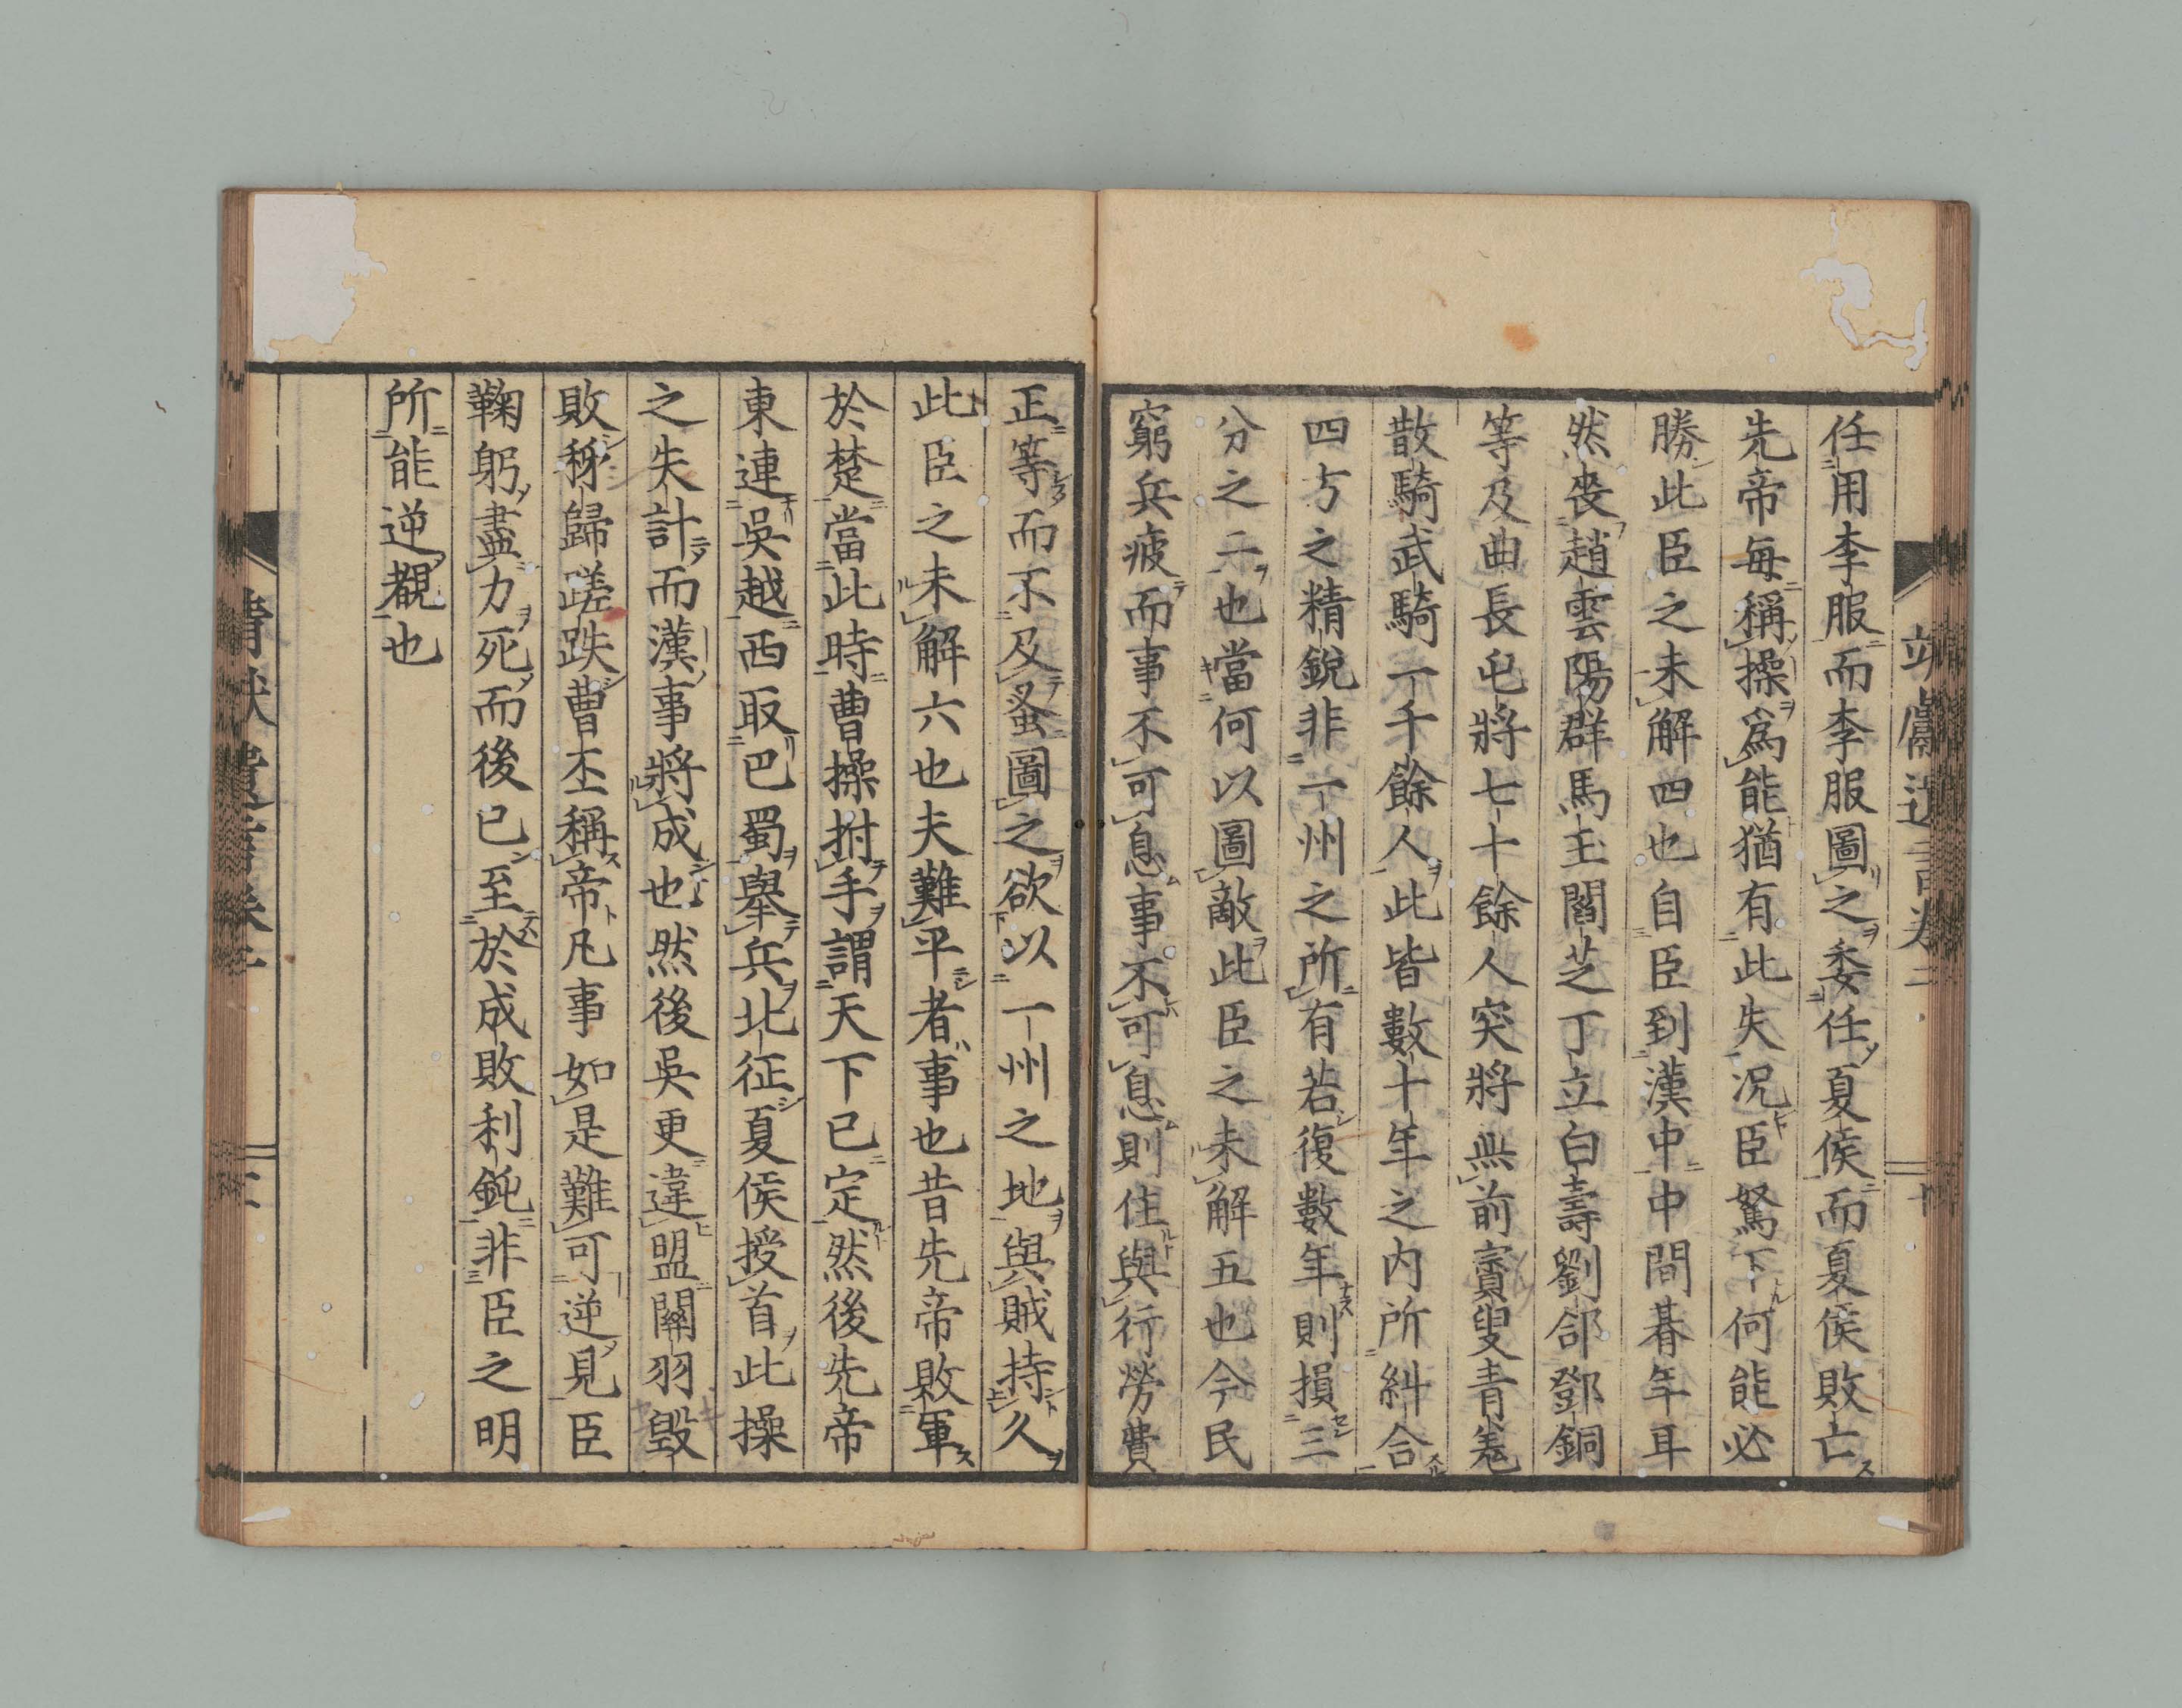 任用李服而李服圖之委任夏侯而夏侯敗亡
先帝每稱操爲能猶有此失況臣駑下何能必
勝此臣之未解四也自臣到漢中中間朞年耳
然喪趙雲陽群馬玉閻芝丁立白壽劉郃鄧銅
等及曲長屯將七十餘人突將無前賨叟青羗
散騎武騎一千餘人此皆數十年之内所糾合
四方之精銳非一州之所有若復數年則損三
分之二也當何以圖敵此臣之未解五也今民
窮兵疲而事不可息事不可息則住與行勞費
正等而不及蚤圖之欲以一州之地與賊持久
此臣之未解六也夫難平者事也昔先帝敗軍
於楚當此時曹操拊手謂天下已定然後先帝
東連吳越西取巴蜀舉兵北征夏侯授首此操
之失計而漢事將成也然後吳更違盟關羽毀
敗秭歸蹉跌曹丕稱帝凡事如是難可逆見臣
鞠躬盡力死而後已至於成敗利鈍非臣之明
所能逆覩也